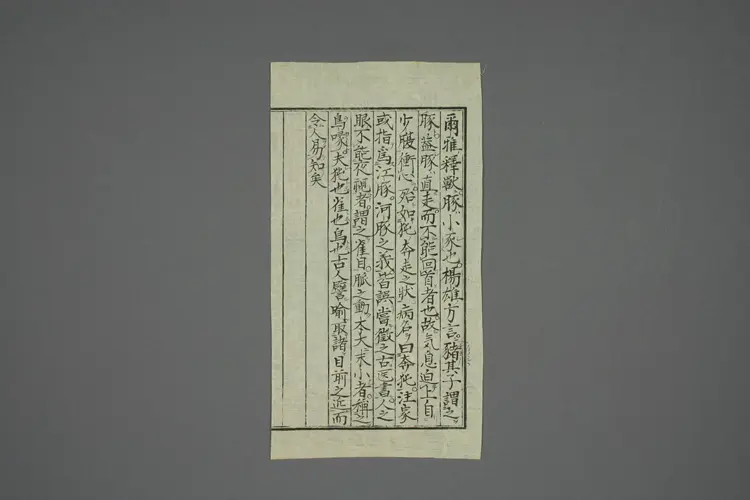 爾雅釋獸豚小豕也楊雄方言豬其子謂之
豚蓋豚直走而不能回首者也故気息迫上自
少腹衝心殆如㹠奔走之狀病名曰奔㹠注家
或指爲江豚河豚之義皆誤嘗徵之古医書人之
眼不能夜視者謂之雀目脈之動本大末小者稱之
烏喙夫㹠也雀也烏也古人譬喻取諸目前之近而
令人易知矣